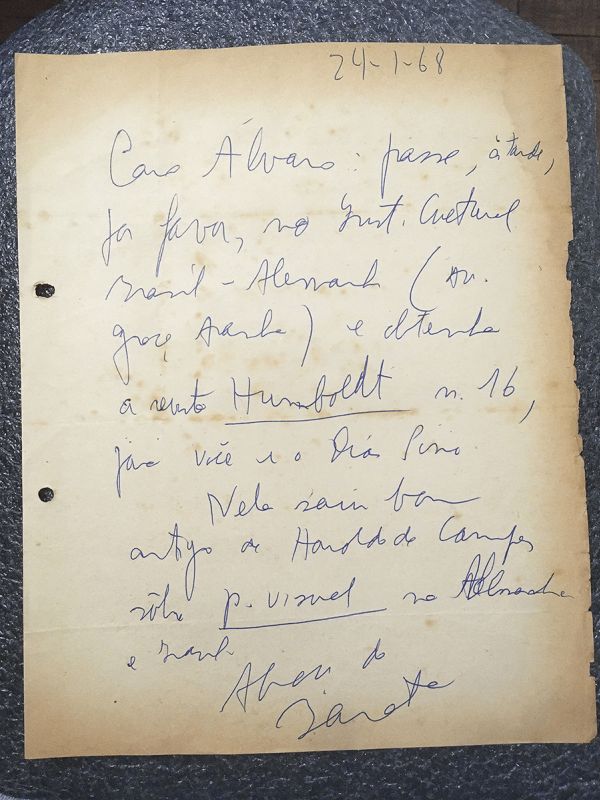 24-1-68
Caro Álvaro: passe, à tarde,
por favor, no Inst. Cultural
Brasil-Alemanha (Av.
Graça Aranha) e obtenha
a revista Humboldt n. 16,
para você e o Dias Pino.
Nela saiu bom
artigo de Haroldo de Campos
sôbre p. visual na Alemanha
e Brasil.
Abraço do